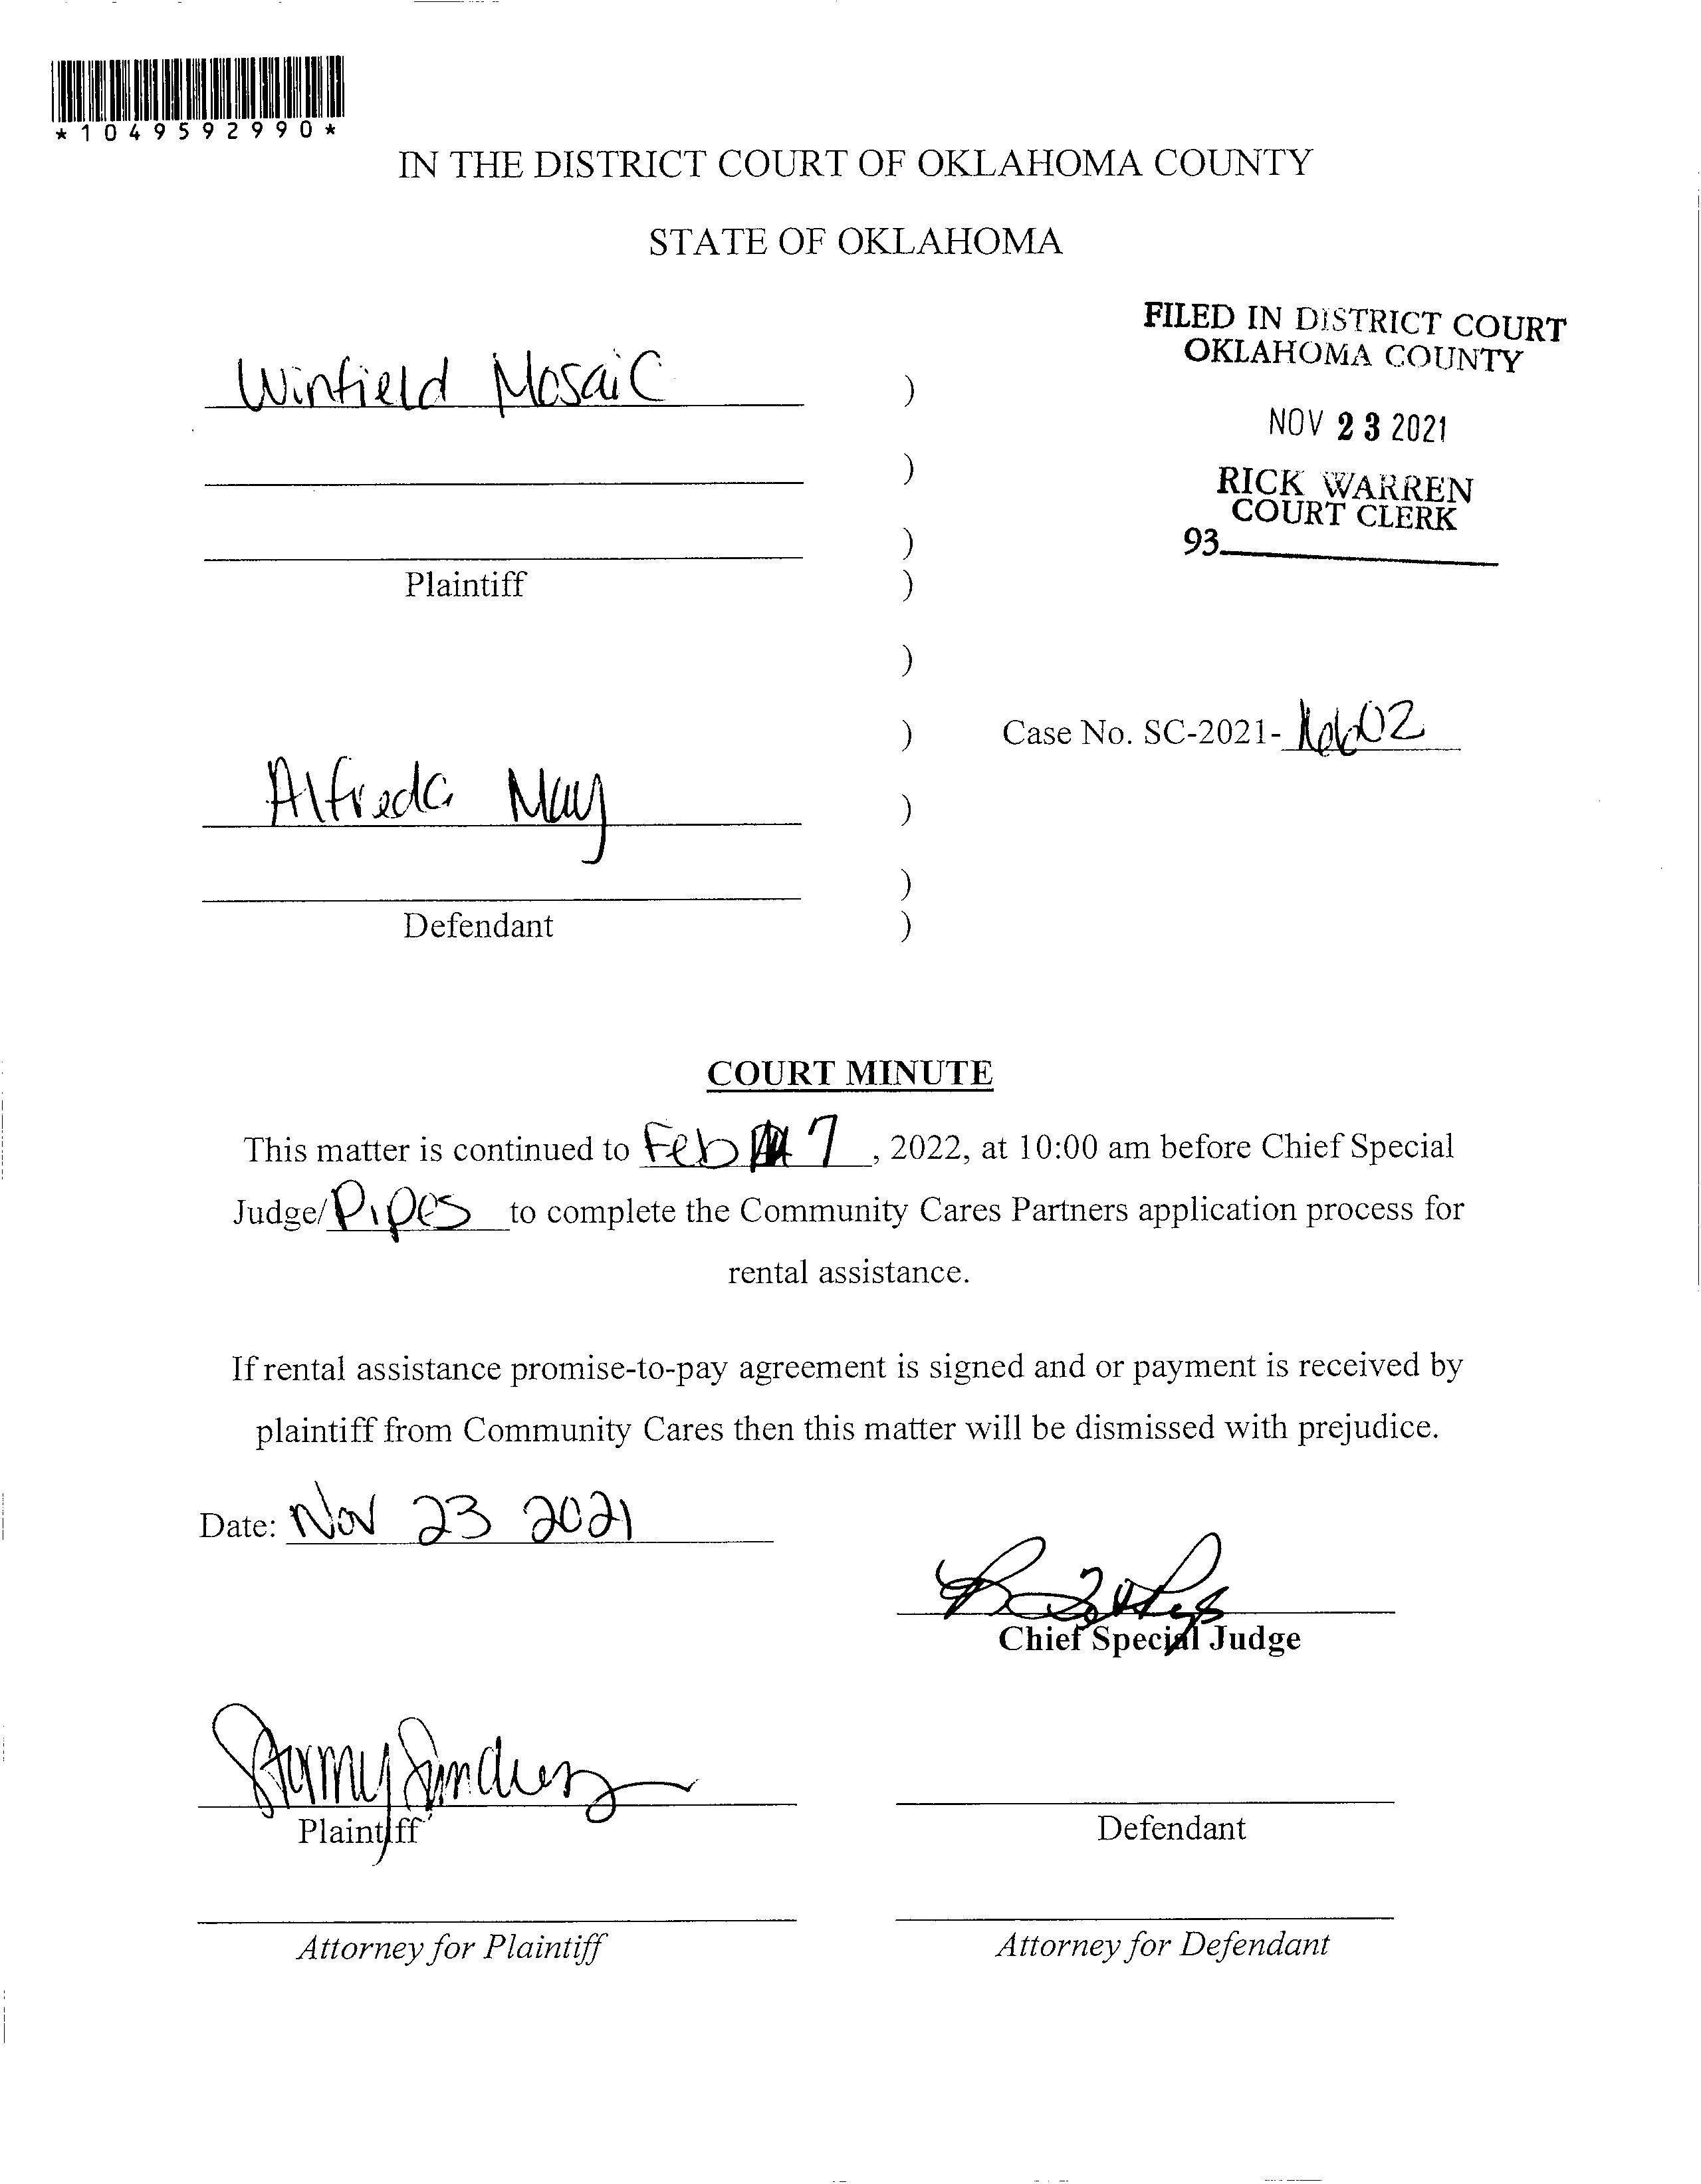 *1049592990*
IN THE DISTRICT COURT OF OKLAHOMA COUNTY
STATE OF OKLAHOMA
FILED IN DISTRICT COURT
OKLAHOMA COUNTY
NOV 23 2021
RICK WARREN
COURT CLERK
93
Winfield Mosaic )
)
)
Plaintiff )
)
) Case No. SC-2021-
Alfreda May )
)
Defendant )
COURT MINUTE
This matter is continued to Feb 7, 2022, at 10:00 am before Chief Special
Judge/Pipes to complete the Community Cares Partners application process for
rental assistance.
If rental assistance promise-to-pay agreement is signed and or payment is received by
plaintiff from Community Cares then this matter will be dismissed with prejudice.
Date: Nov 23 2021
Chief Special Judge
Plaintiff Defendant
Attorney for Plaintiff Attorney for Defendant